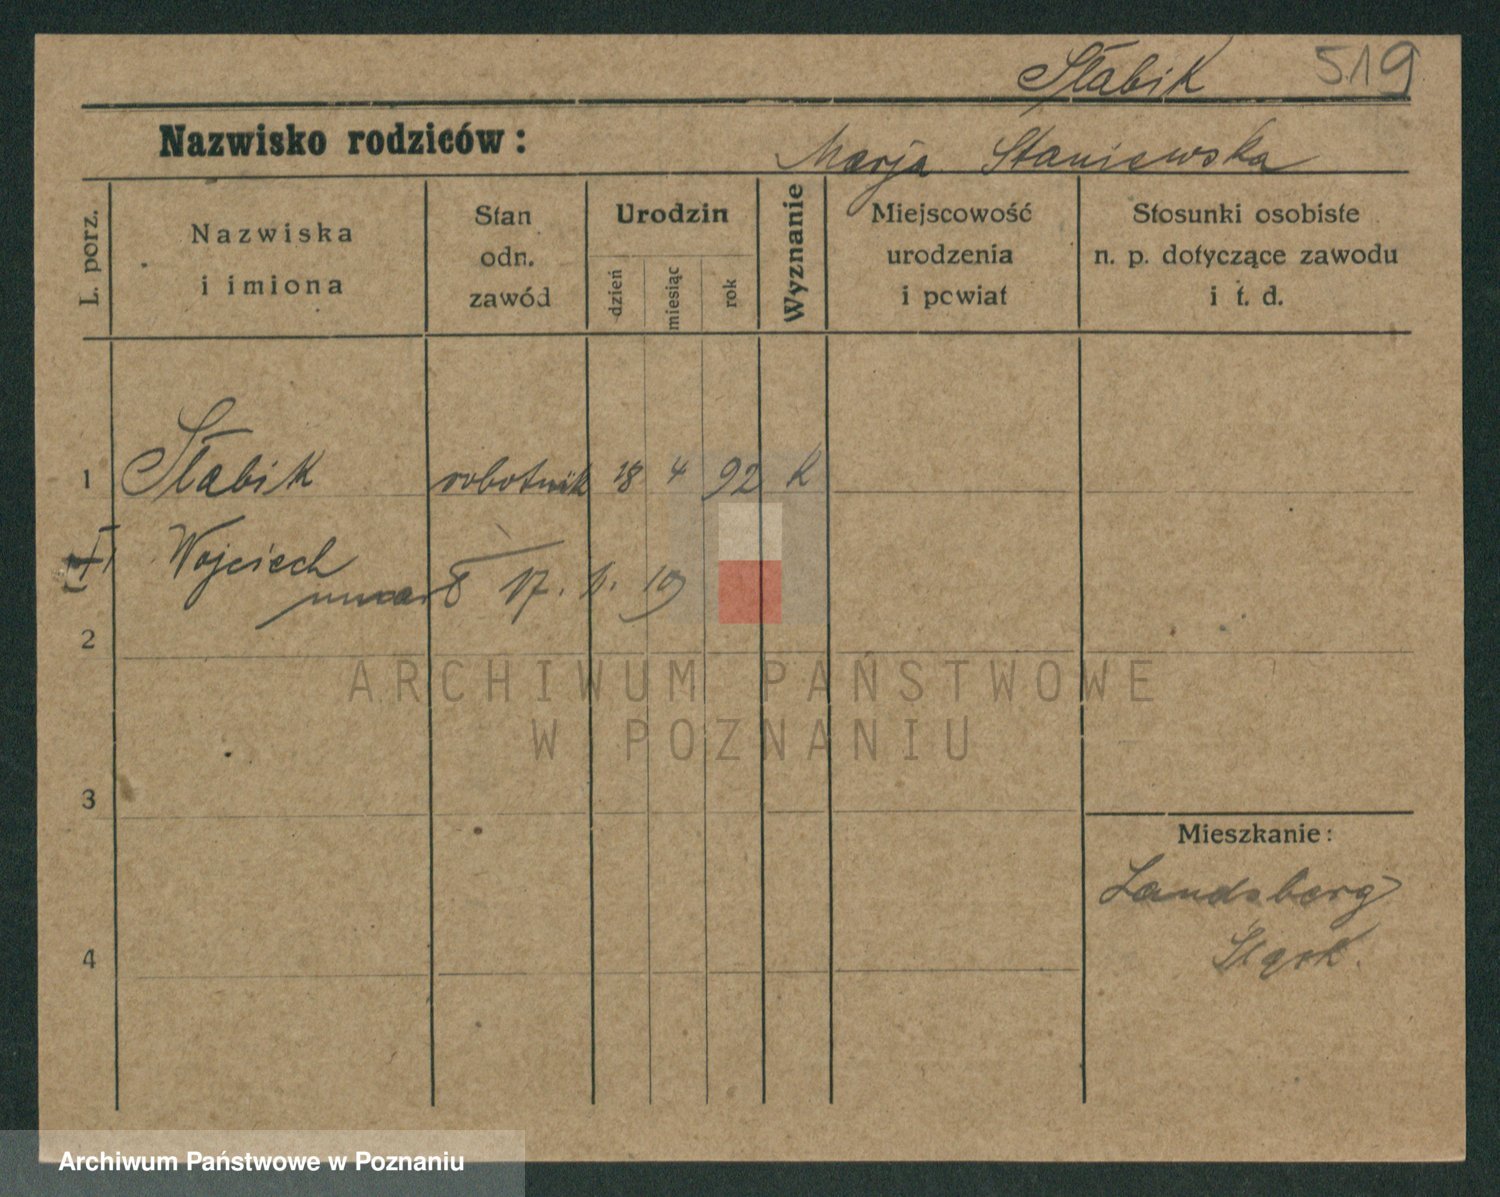 Słabik 519
Nazwisko rodziców:
Marja Staniewska
L. porz.
Nazwiska
i imiona
Stan
odn.
zawód
Urodzin
dzień
miesiąc
rok
Wyznanie
Miejscowość
urodzenia
i powiat
Stosunki osobiste
n. p. dotyczące zawodu
i t. d.
1 Słabik robotnik 18 4 92 k
Wojciech
17. 1. 19
2
ARCHIWUM PAŃSTWOWE
W POZNANIU
3
Mieszkanie:
Landsberg
Śląsk.
4
Archiwum Państwowe w Poznaniu